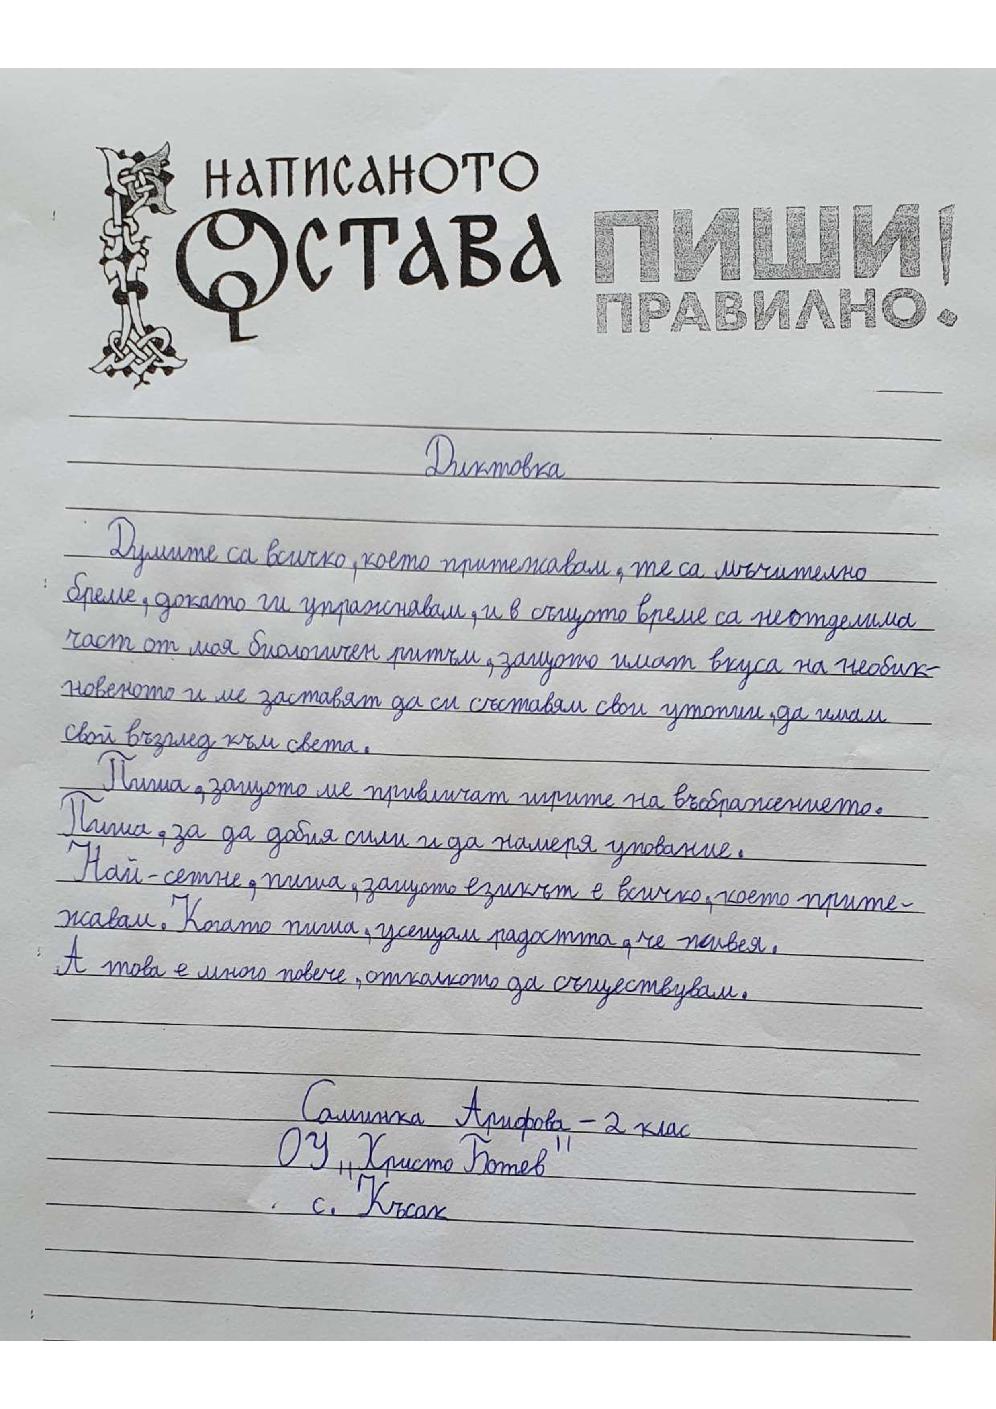 НАПИСАНОТО
ОСТАВА
ПИШИ!
ПРАВИЛНО.
Диктовка
Думите са всичко, което притежавам, те са мъчително
бреме, докато ги упражнавам, и в същото време са неотделима
част от моя биологичен ритъм, защото имат вкуса на необик-
новеното и ме заставят да си съставям свои утопии, да имам
свой възглед към света.
Пиша, защото ме привличат игрите на въображението.
Пиша, за да добия сили и да намеря упование.
Най-сетне, пиша, защото езикът е всичко, което прите-
жавам. Когато пиша, усещам радостта, че живея.
А това е много повече, отколкото да съществувам.
Саминка Арифова – 2 клас
ОУ „Христо Ботев"
с. Късак